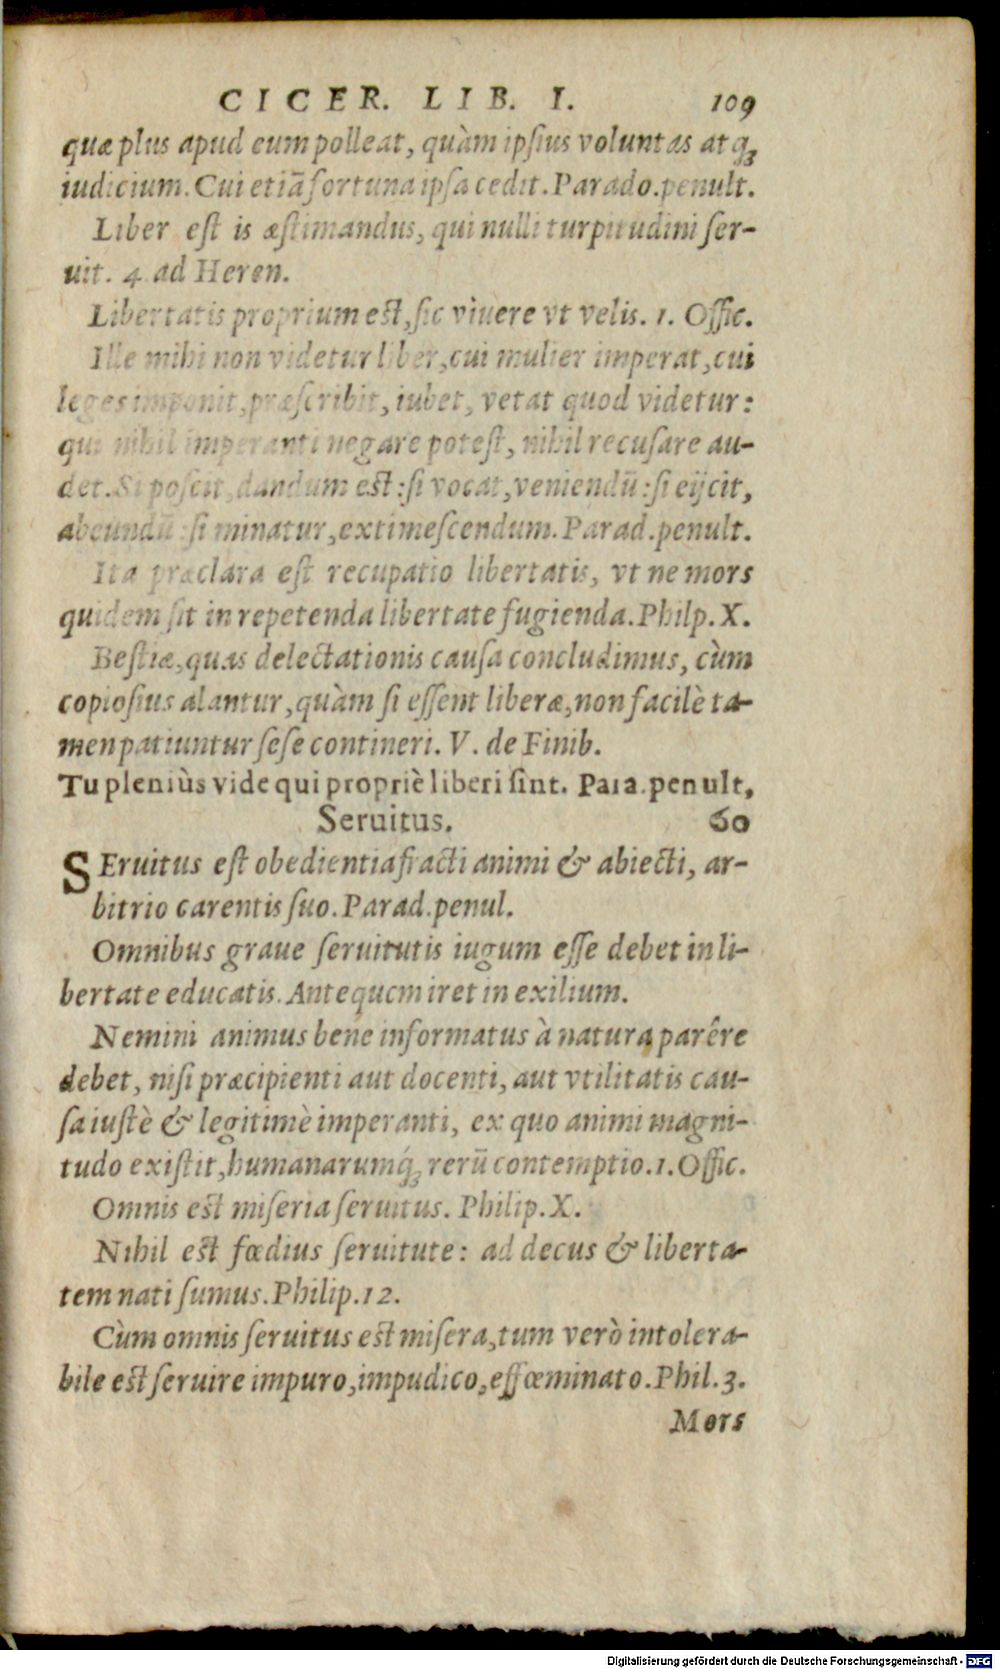 CICER. LIB. I. 109
quæ plus apud eum polleat, quàm ipsius voluntas atq́ꝫ
iudicium. Cui etiā fortuna ipsa cedit. Parado. penult.
Liber est is æstimandus, qui nulli turpitudini ser-
uit. 4 ad Heren.
Libertatis proprium est, sic viuere vt velis. 1. Offic.
Ille mihi non videtur liber, cui mulier imperat, cui
leges imponit, præscribit, iubet, vetat quod videtur:
qui nihil imperanti negare potest, nihil recusare au-
det. Si poscit, dandum est: si vocat, veniendū: si eijcit,
abeundū: si minatur, extimescendum. Parad. penult.
Ita præclara est recupatio libertatis, vt ne mors
quidem sit in repetenda libertate fugienda. Philp. X.
Bestiæ, quas delectationis causa concludimus, cùm
copiosius alantur, quàm si essent liberæ, non facilè ta-
men patiuntur sese contineri. V. de Finib.
Tu pleniùs vide qui propriè liberi sint. Para. penult,
Seruitus. 60
SEruitus est obedientia fracti animi & abiecti, ar-
bitrio carentis suo. Parad. penul.
Omnibus graue seruitutis iugum esse debet in li-
bertate educatis. Antequem iret in exilium.
Nemini animus bene informatus à natura parêre
debet, nisi præcipienti aut docenti, aut vtilitatis cau-
sa iustè & legitimè imperanti, ex quo animi magni-
tudo existit, humanarumq́ꝫ rerū contemptio. 1. Offic.
Omnis est miseria seruitus. Philip. X.
Nihil est fœdius seruitute: ad decus & liberta-
tem nati sumus. Philip. 12.
Cùm omnis seruitus est misera, tum verò intolera-
bile est seruire impuro, impudico, effœminato. Phil. 3.
Mors
Digitalisierung gefördert durch die Deutsche Forschungsgemeinschaft - DFG